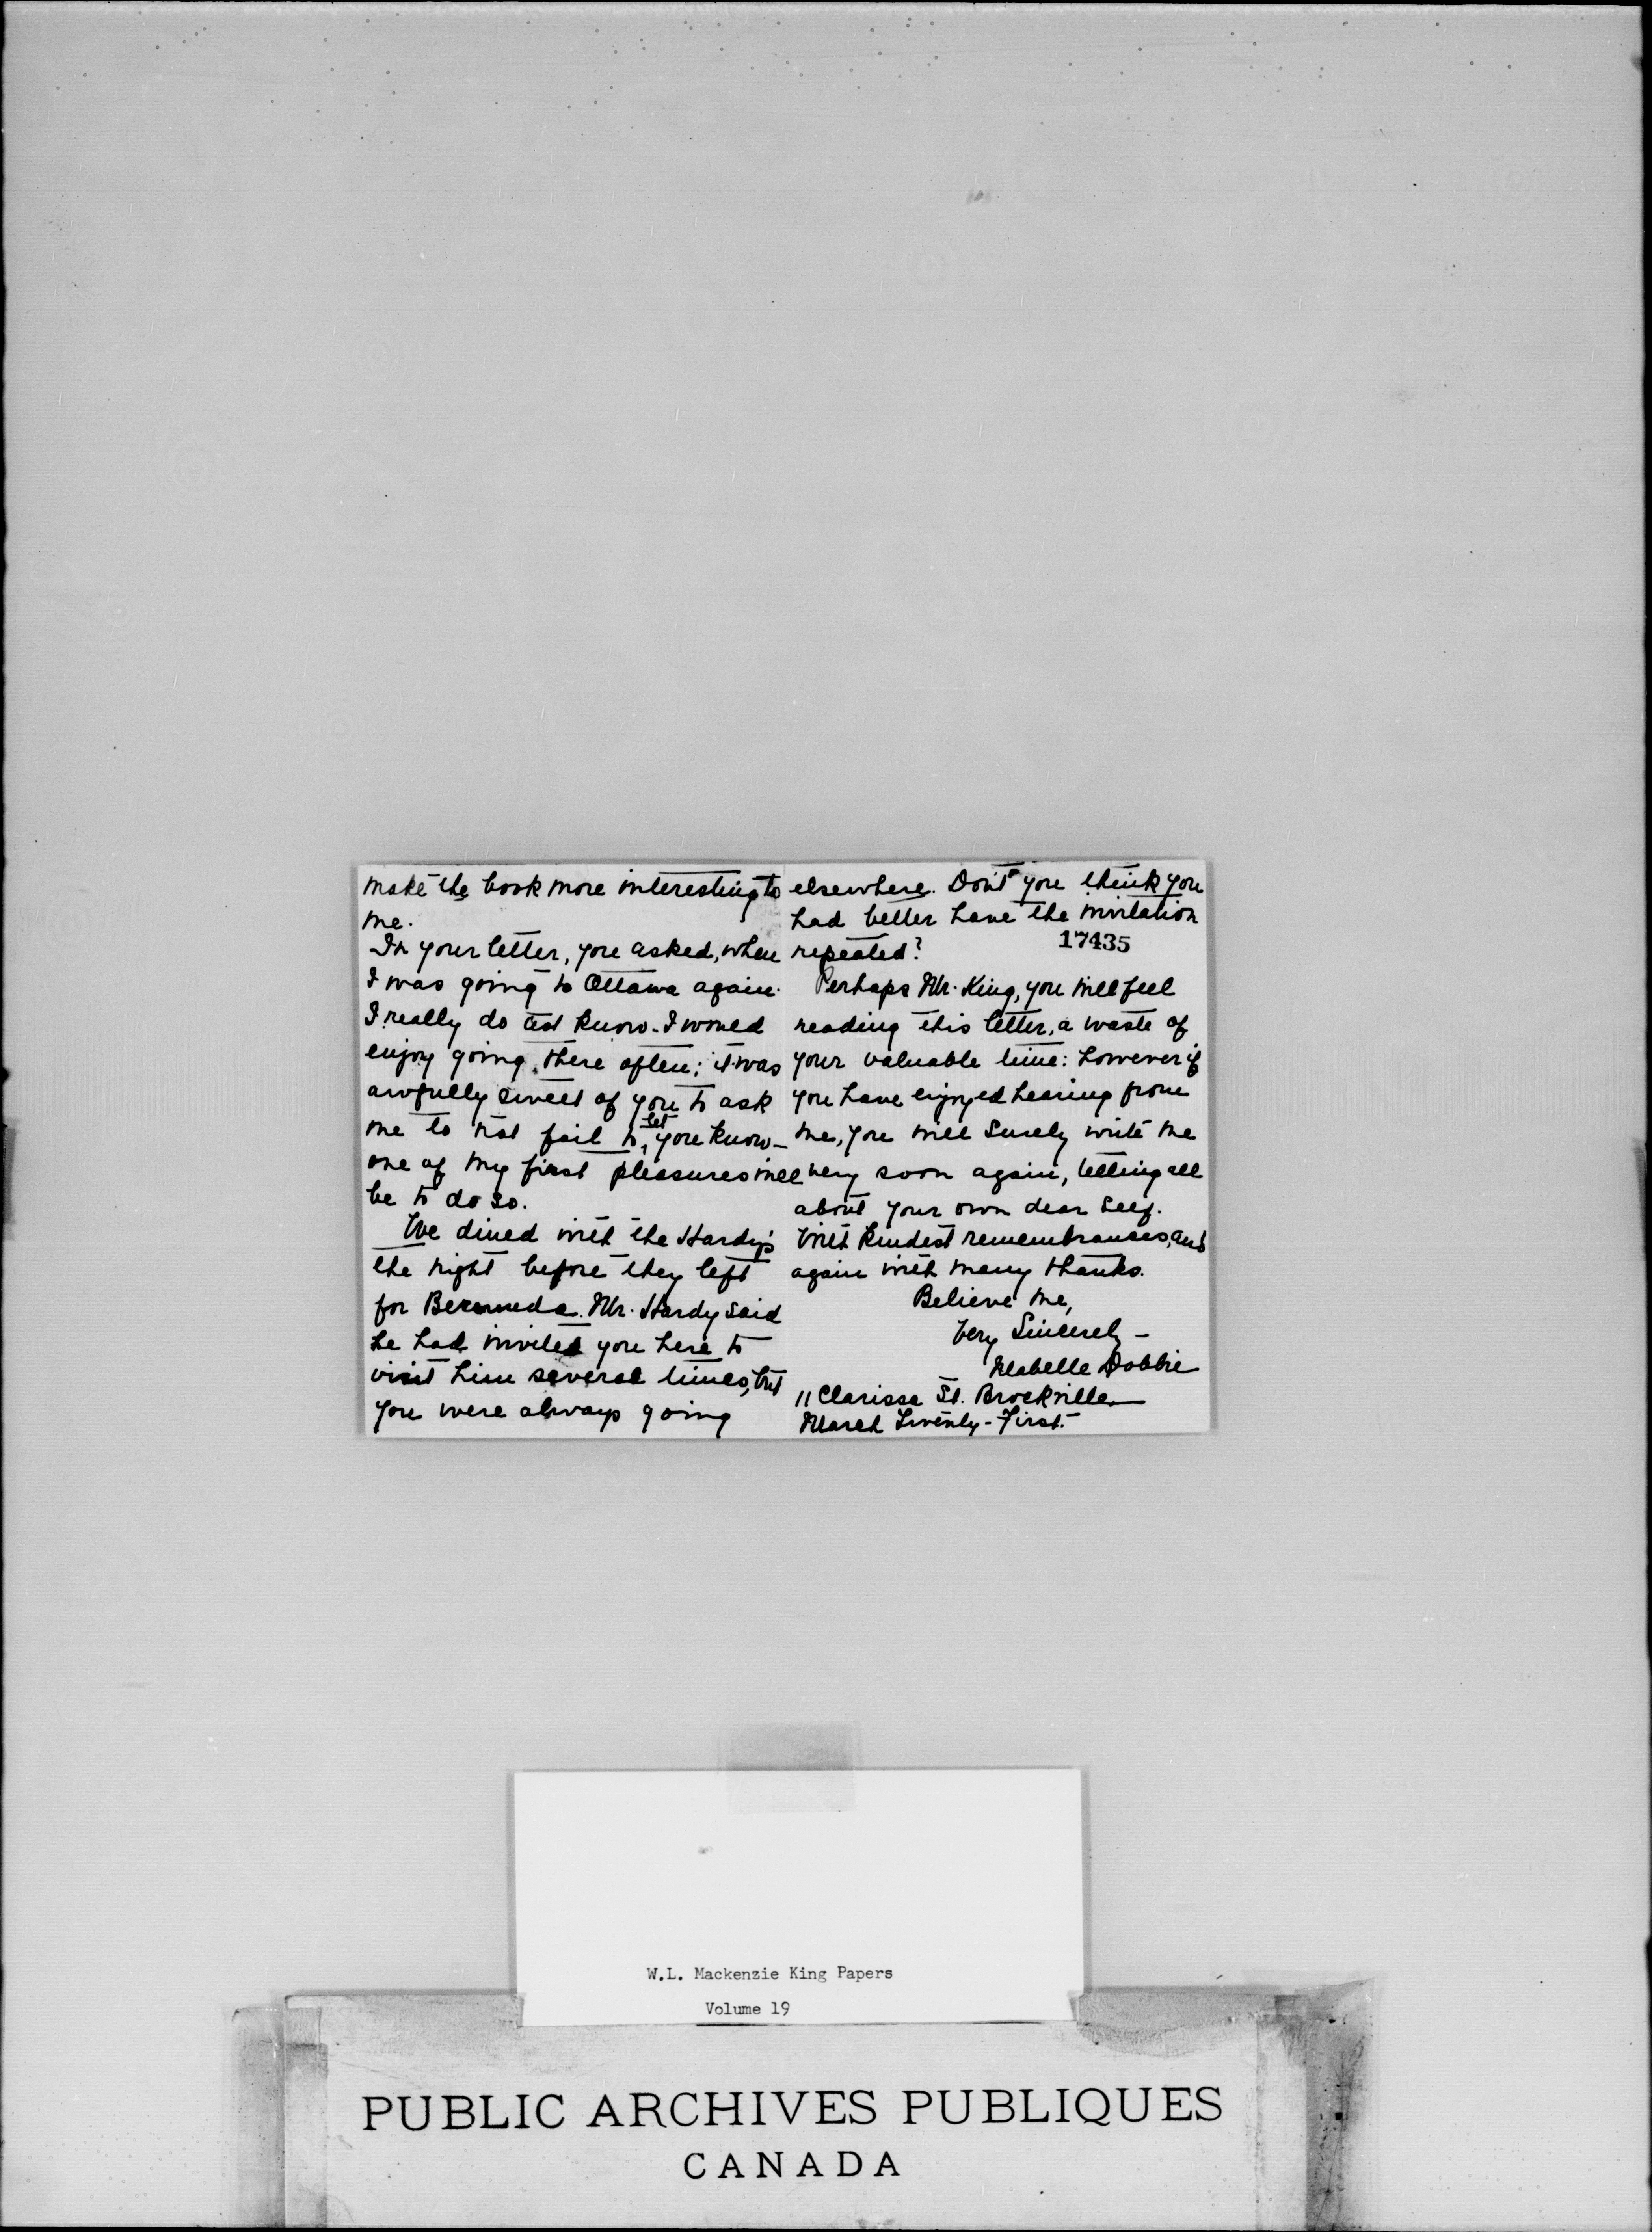 make the book more interesting to
me.
In your letter, you asked, when
I was going to Ottawa again.
I really do not know. I would
enjoy going there often; it was
awfully sweet of you to ask
me to not fail to let you know—
one of my first pleasures will
be to do so.
We dined with the Hardy's
the night before they left
for Bermuda. Mr. Hardy said
he had invited you here to
visit him several times, but
you were always going
elsewhere. Don't you think you
had better have the invitation
repeated?
17435
Perhaps Mr. King, you will feel
reading this letter, a waste of
your valuable time: however if
you have enjoyed hearing from
me, you will surely write me
very soon again, telling all
about your own dear self.
With kindest remembrances, and
again with many thanks.
Believe me,
Very Sincerely—
Mabelle Dobbie
11 Clarissa St. Brockville—
March Twenty-First.
W.L. Mackenzie King Papers
Volume 19
PUBLIC ARCHIVES PUBLIQUES
CANADA